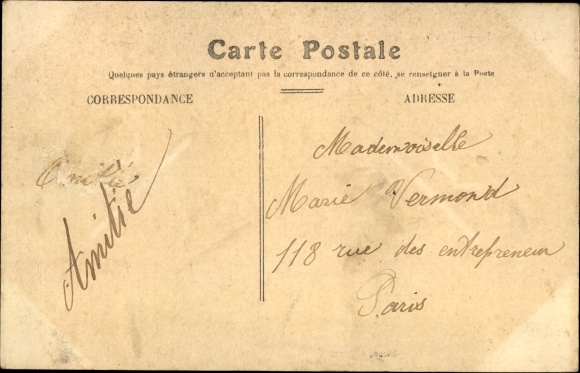 Carte Postale
Quelques pays étrangers n'acceptant pas la correspondance de ce côté, se renseigner à la Poste
CORRESPONDANCE
ADRESSE
Amitié
Amitie
Mademoiselle
Marie Vermond
118 rue des entrepreneur
Paris